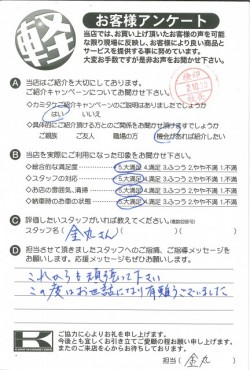 軽
お客様アンケート
当店では、お買い上げ頂いたお客様の声を可能
な限り現場に反映し、お客様により良い商品と
サービスを提供する事に努めています。
大変お手数ですが是非お声をお聞かせ下さい。
A 当店はご紹介を大切にしております。
ご紹介キャンペーンについてお聞かせ下さい。
・カミタケご紹介キャンペーンのご説明はありましたでしょうか
はい いいえ
・具体的にご紹介頂ける方とのご関係をお聞かせ頂けますでしょうか
ご親族 ご友人 職場の方 機会があれば紹介したい
B 当店を実際にご利用になった印象をお聞かせ下さい。
・総合的な満足度 5.大満足 4.満足 3.ふつう 2.やや不満 1.不満
・スタッフの対応 5.大満足 4.満足 3.ふつう 2.やや不満 1.不満
・お店の雰囲気、清掃 5.大満足 4.満足 3.ふつう 2.やや不満 1.不満
・納車時のお車の状態 5.大満足 4.満足 3.ふつう 2.やや不満 1.不満
C 評価したいスタッフがいれば教えてください。(複数回答可)
スタッフ名( 金丸さん )
D 担当させて頂きましたスタッフへのご指摘、ご指導メッセージを
お願いします。応援メッセージもぜひお願いします。
これからも頑張って下さい
この度はお世話になり有難うございました
K
ご協力に心よりお礼を申し上げます。
今後とも宜しくお引き立てご愛顧の程お願い申し上げます。
またのご来店を心からお待ちしております。
担当( 金丸 )